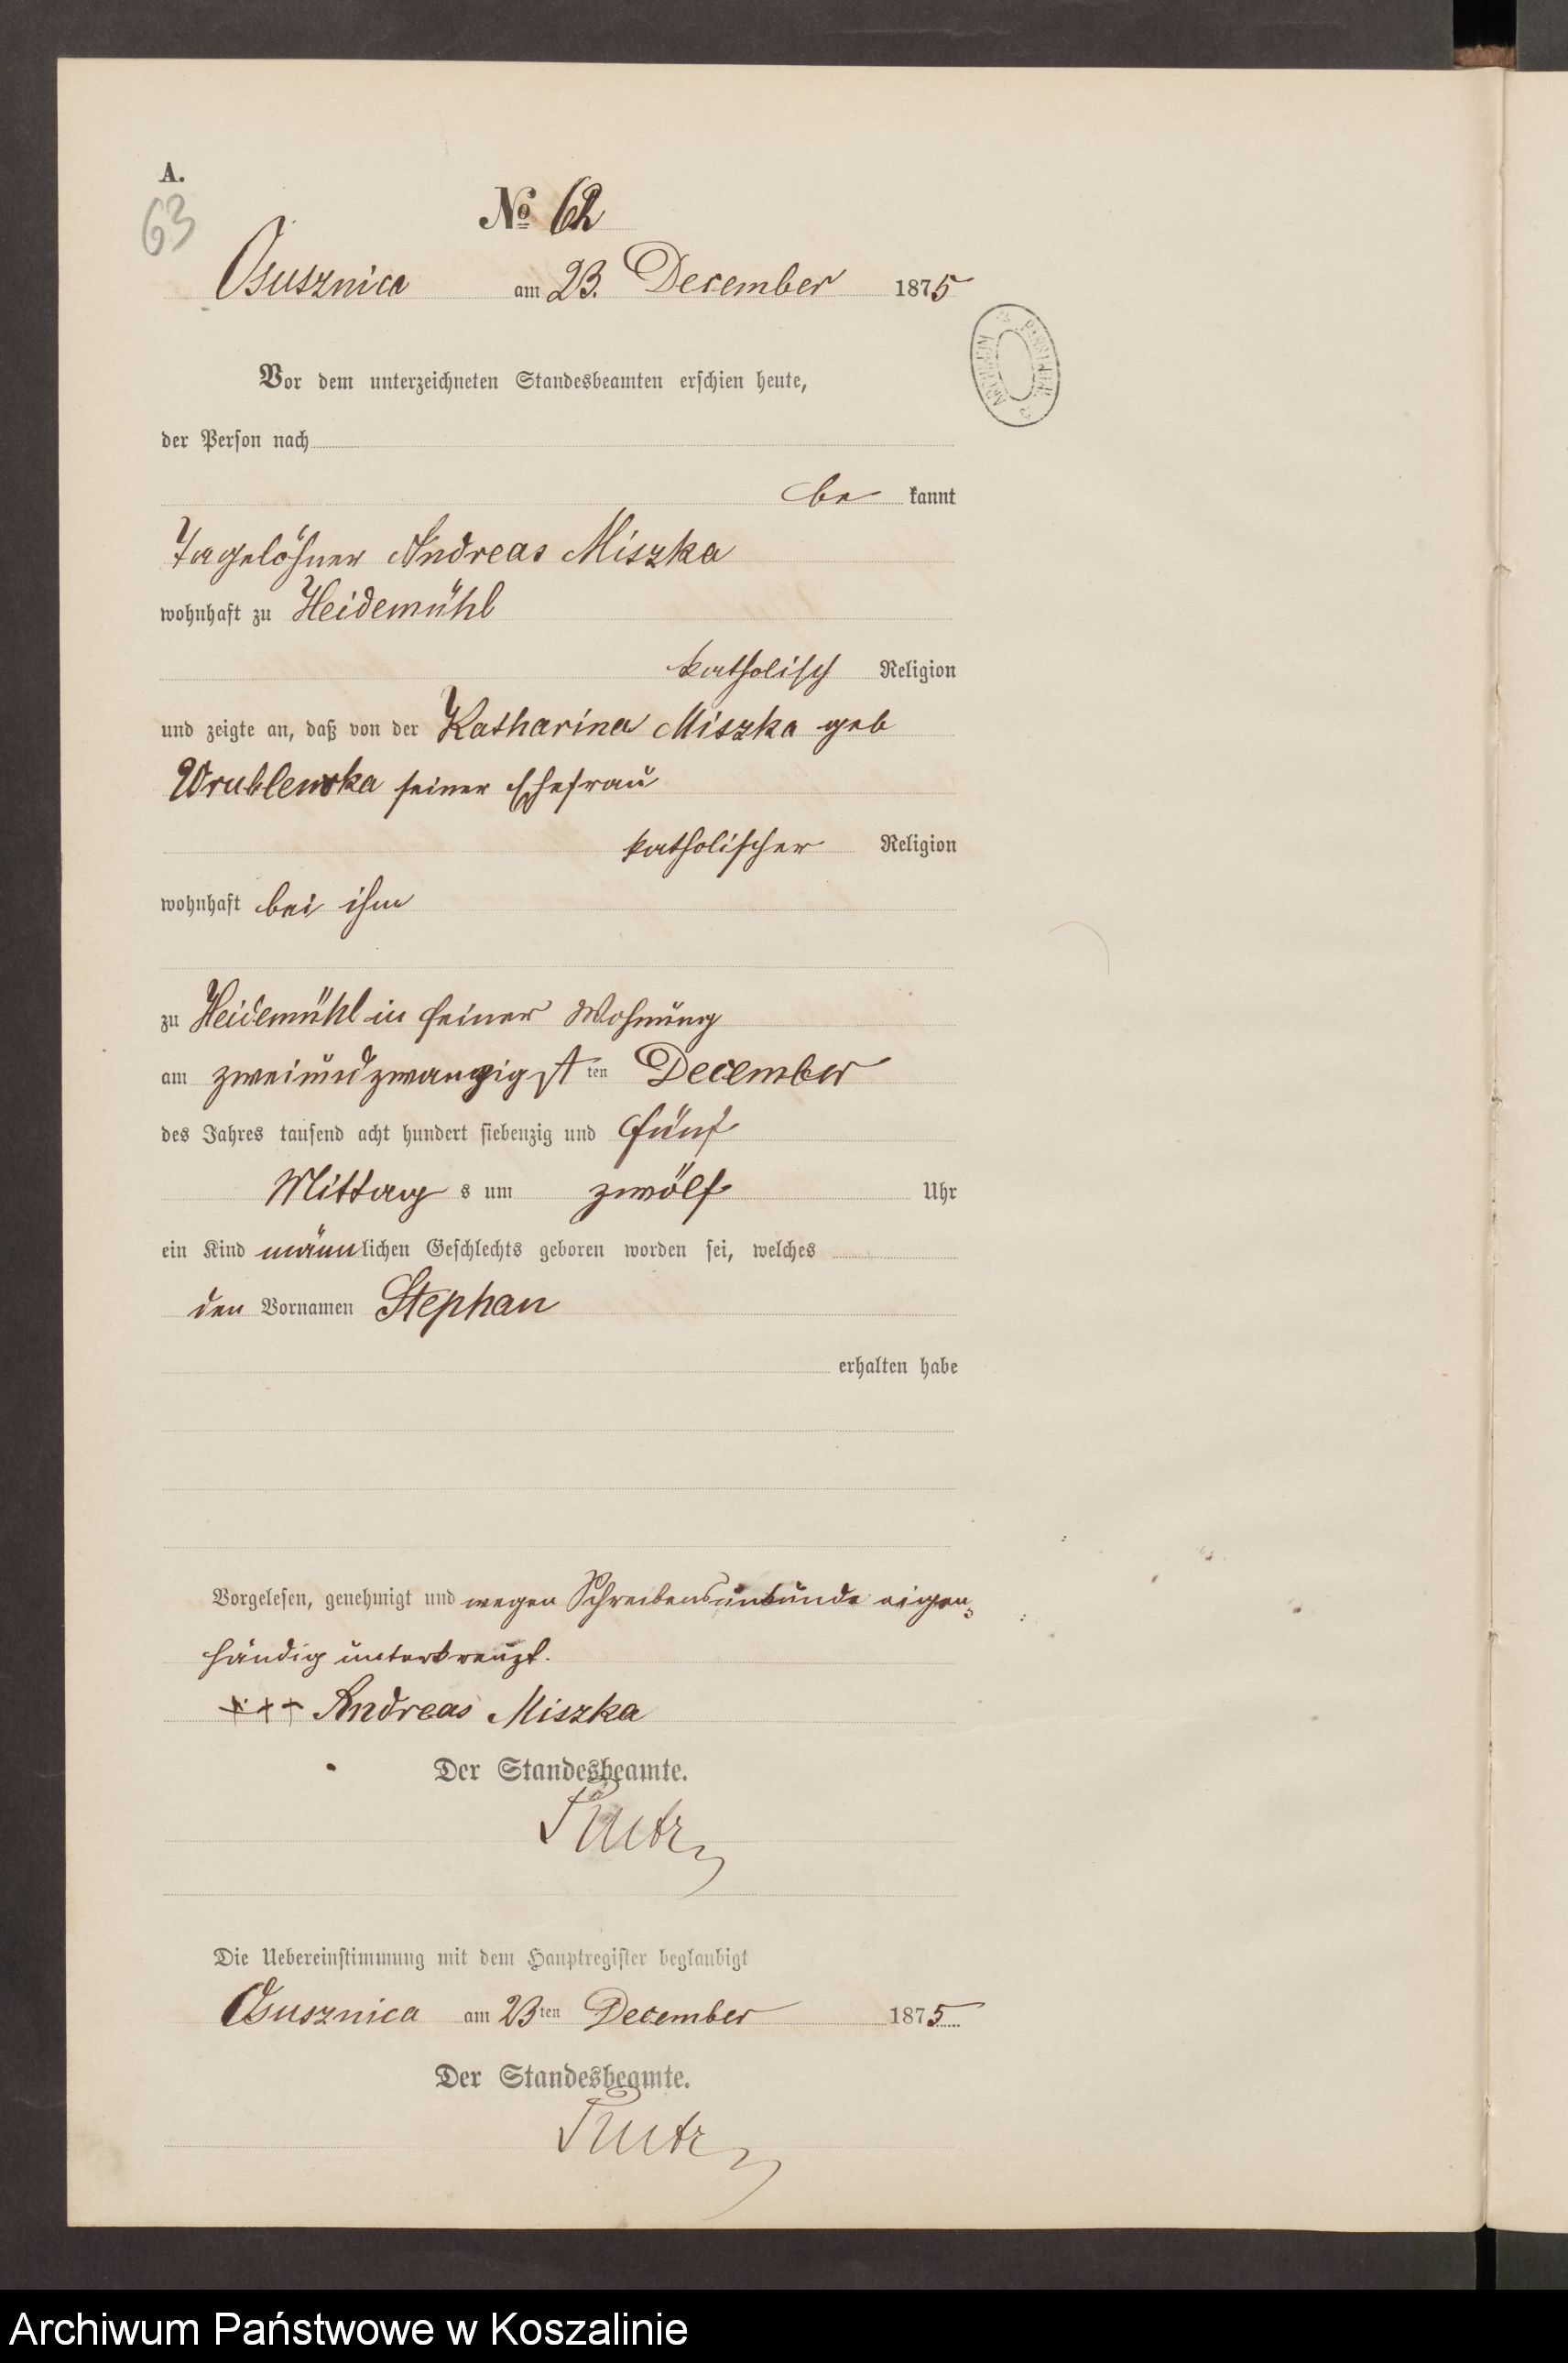 A.
63
№ 62
Osusznica am 23. December 1875
Vor dem unterzeichneten Standesbeamten erschien heute,
der Person nach
be kannt
Tagelöhner Andreas Miszka
wohnhaft zu Heidemühl
katholisch Religion
und zeigte an, daß von der Katharina Miszka geb
Wrublewska seiner Ehefrau
katholischer Religion
wohnhaft bei ihm
zu Heidemühl in seiner Wohnung
am zweiundzwanzigst ten December
des Jahres tausend acht hundert siebenzig und fünf
Mittag s um zwölf Uhr
ein Kind männlichen Geschlechts geboren worden sei, welches
den Vornamen Stephan
erhalten habe
Vorgelesen, genehmigt und wegen Schreibensunkunde eigen-
händig unterkreuzt.
+++ Andreas Miszka
Der Standesbeamte.
Die Uebereinstimmung mit dem Hauptregister beglaubigt
Osusznica am 23ten December 1875
Der Standesbeamte.
Archiwum Państwowe w Koszalinie